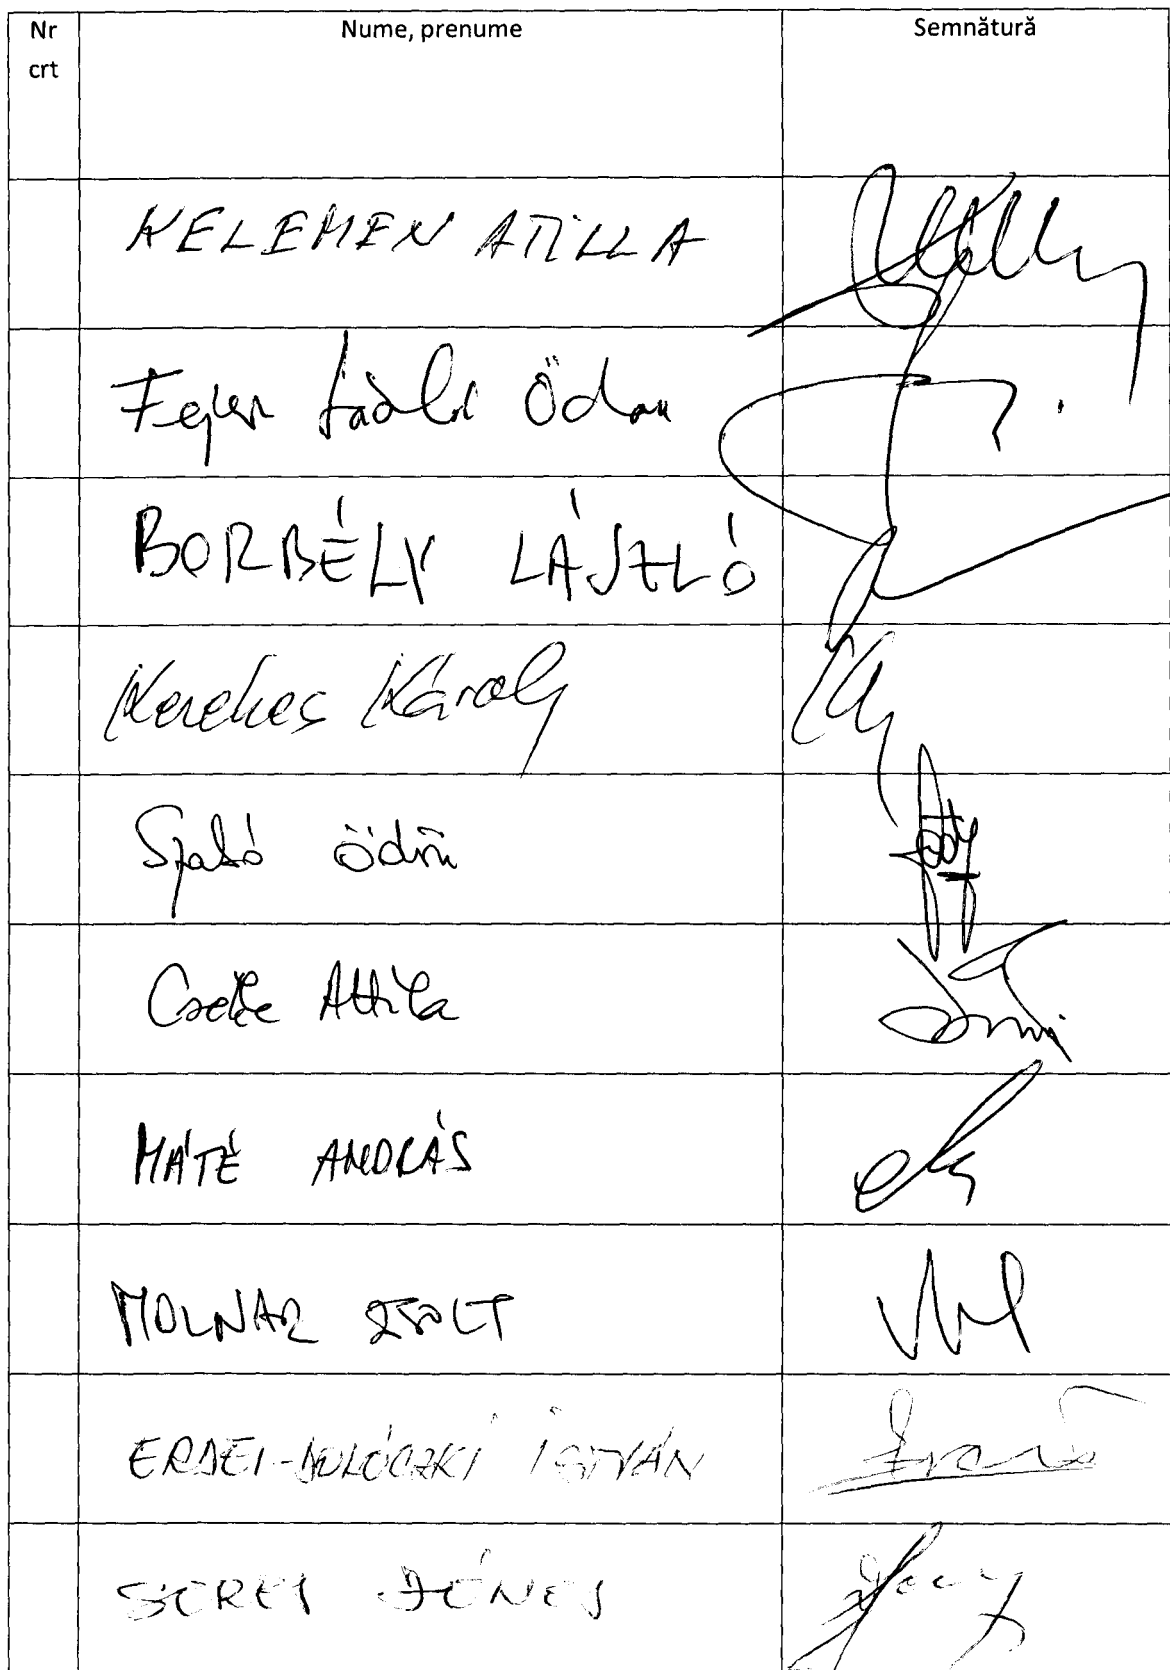 Nr Nume, prenume Semnătură
crt
KELEMEN ATILLA
Fejer László Ödön
BORBÉLY LÁSZLÓ
Kerekes Károly
Szabó Ödön
Cseke Attila
MÁTÉ ANDRÁS
MOLNAR ZSOLT
ERDEI-DOLÓCZKI ISTVÁN
SERES DÉNES